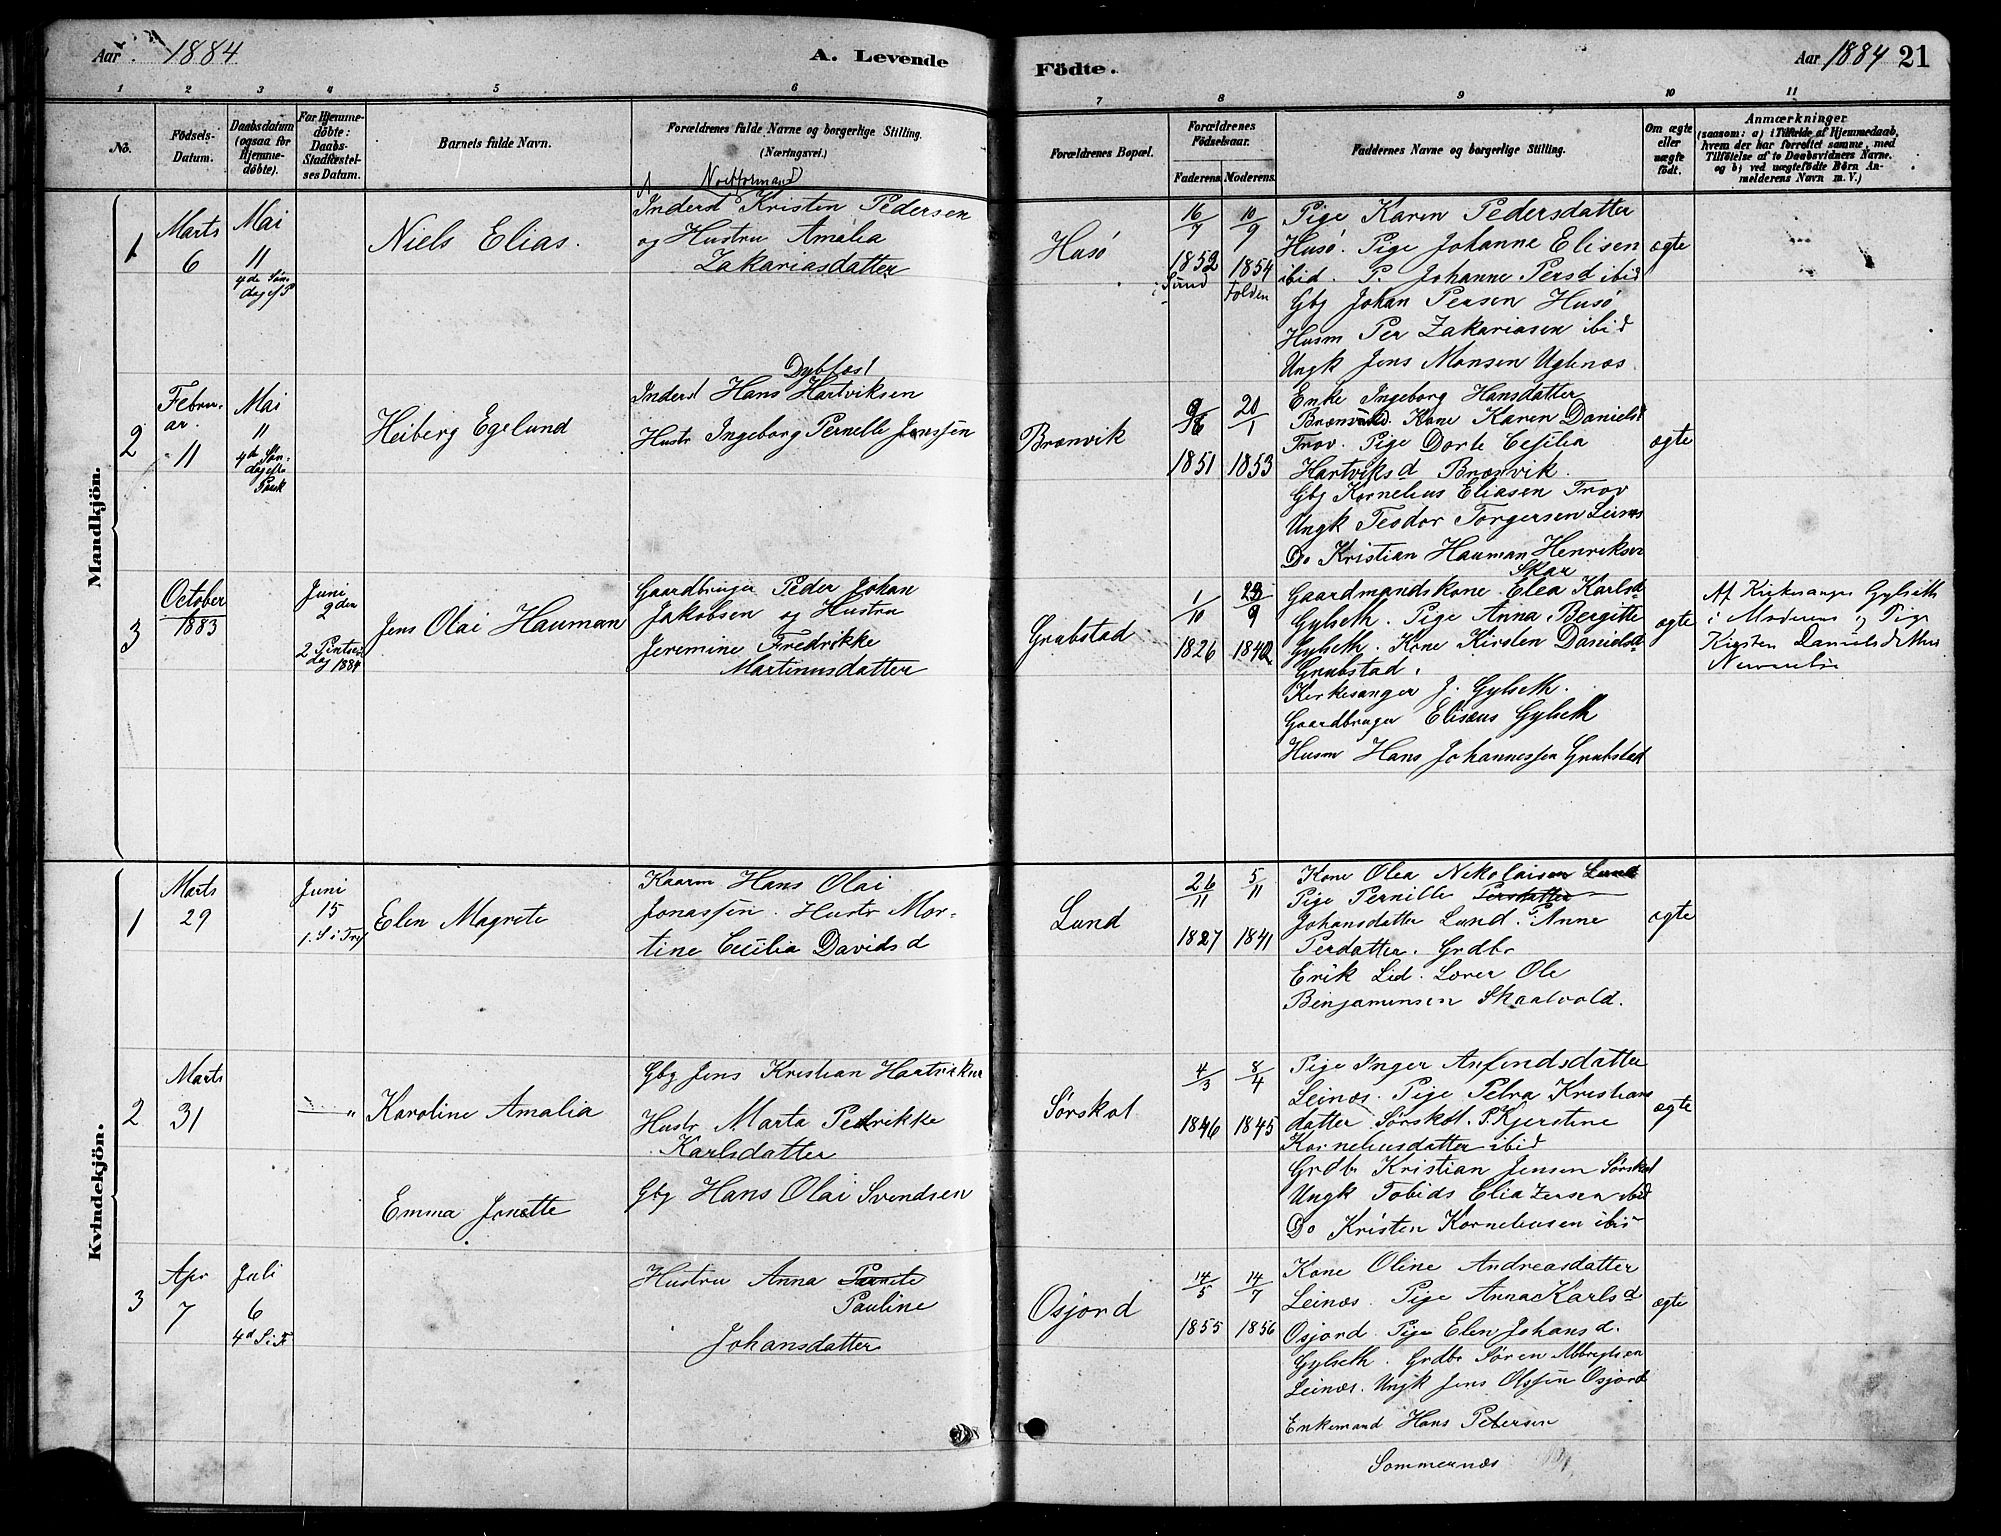 Aar 1884
A. Levende
Födte.
Aar 1884 21
1 2 3 4 5 6 7 8 9 10 11
No.
Födsels-
Datum.
Daabsdatum
(ogsaa for
Hjemme-
döbte).
For Hjemme-
döbte:
Daabs-
Stadfæstel-
ses Datum.
Barnets fulde Navn.
Forældrenes fulde Navne og borgerlige Stilling.
(Næringsvei.)
Forældrenes Bopæl.
Forældrenes
Födselsaar.
Faderens. Moderens.
Faddernes Navne og borgerlige Stilling.
Om ægte
eller
uægte
födt.
Anmærkninger
(saasom: a) i Tilfælde af Hjemmedaab,
hvem der har forrettet samme, med
Tilföielse af to Daabsvidners Navne.
og b) ved uægtefödte Börn An-
melderens Navn m. V.)
Mandkjön.
1
Marts
6
Mai
11
4de Søn-
dag ef P
Niels Elias.
Inderst Kristen Pedersen
og Hustru Amalia
Zakariasdatter
Husö
16/7
1852
10/9
1854
Folden
Pige Karen Pedersdatter
Husö. Pige Johanne Elisen
ibid. P. Johanne Persd ibid
Gbg Johan Persen Husö
Husm Per Zakariasen ibid
Ungk Jens Monsen Uglenæs.
ægte
2
Febru-
ar.
11
Mai
11
4de Søn-
dag efte
Paask
Heiberg Egelund
Dybfæst
Inderst Hans Hartviksen
Hustr Ingeborg Pernelle Jonssen
Brænvik
1851
20/1
1853
Enke Ingeborg Hansdatter
Kone Karen Danielsd
Trov. Pige Dorte Cesilia
Hartviksd Brænvik.
Gbg Kornelius Eliasen Trov
Ungk Teodor Torgersen Leinæs
Do Kristian Hauman Henriksen
Skar
ægte
3
October
1883
Juni
2den
2 Pintse
dag 1884
Jens Olai Hauman
Gaardbruger Peder Johan
Jakobsen og Hustru
Jeremine Fredrikke
Martinusdatter
Grubstad
1/10
1826
Gaardmandskone Elea Karlsd
Gylseth. Pige Anna Bergitte
Gylseth. Kone Kirsten Danielsd
Grubstad.
Kirkesanger J. Gylseth.
Gaardbruger Eliseus Gylseth
Husm Hans Johannessen Grubstad
ægte
Af Kirkesanger Gylseth
i Moderens og Pige
Kirsten Danielsd
Kvindekjön.
1
Marts
29
Juni
15
1. S i Tref
Elen Magrete
Kaarm Hans Olai
Jonassen. Hustr Mor-
tine Cecilia Davidsd
Lund
26/11
1827
5/11
1841
Kone Olea Nikolaisen Lund
Pige Pernille Persdatter
Johansdatter Lund. P. Anne
Perdatter. Grdbr
Erik Lid. Lærer Ole
Benjaminsen Skaalvold.
ægte
2
Marts
31
— "
Karoline Amalia
Gbg Jens Kristian Hartviksen
Hustr Marta Pedrikke
Karlsdatter
Sörskot
4/3
1846
8/4
1845
Pige Inger Anfindsdatter
Leinæs. Pige Petra Kristians
datter Sörskot. P. Kjerstine
Kornelieusdatter ibid
Grdbr Kristian Jensen Sörskot
Ungk Tobias Eliazersen ibid
Do Kristen Korneliusen ibid
ægte
3
Apr
7
Juli
6
4d S i T
Emma Jonette
Gbg Hans Olai Svendsen
Hustru Anna
Pauline
Johansdatter
Osjord
14/5
1855
14/7
1856
Kone Oline Andreasdatter
Leinæs. Pige Anna Karlsd
Osjord. Pige Elen Johansd.
Gylseth. Grdbr Sören Albregtsen
Leinæs. Ungk Jens Olssen Osjord
Enkemand Hans Petersen
Sommernæs
ægte